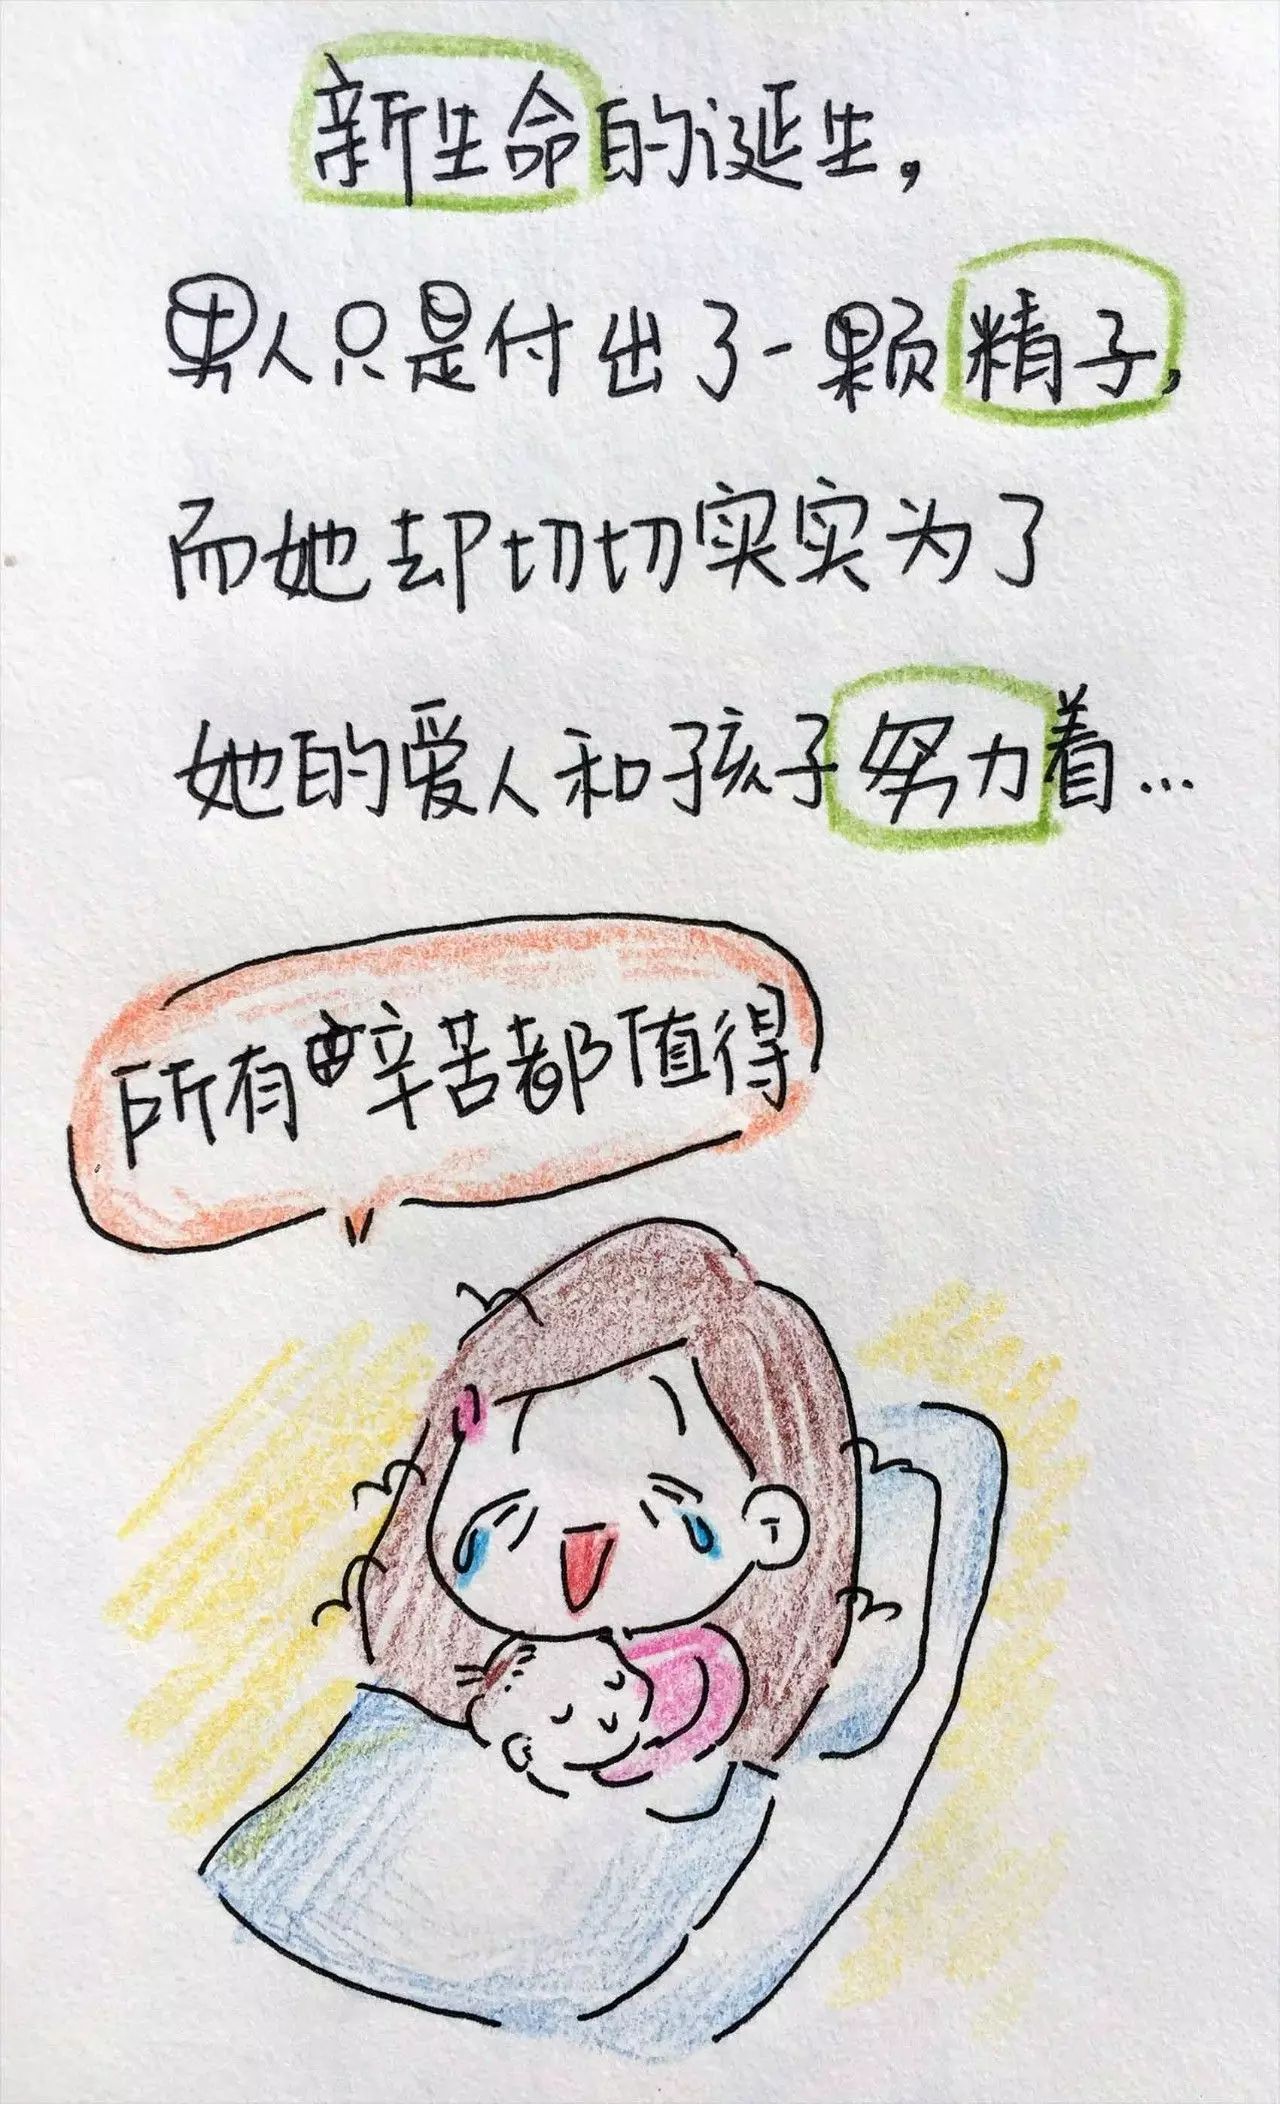 新生命的诞生，
男人只是付出了一颗精子，
而她却切切实实为了
她的爱人和孩子努力着...
所有辛苦都值得